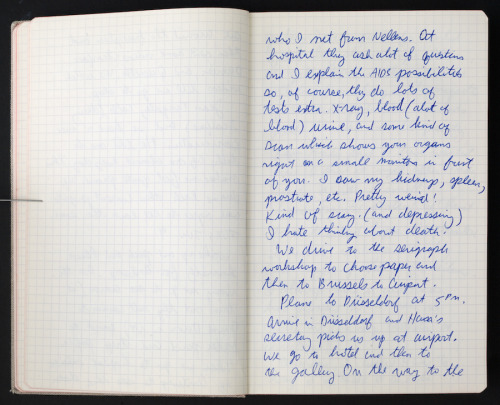 who I met from Nellens. At
hospital they ask alot of questions
and I explain the AIDS possibilities
so, of course, they do lots of
tests extra. X-ray, blood (alot of
blood) urine, and some kind of
scan which shows your organs
right on a small monitor in front
of you. I saw my kidneys, spleen,
prostrate, etc. Pretty weird!
Kind of scary. (and depressing)
I hate thinking about death.
We drive to the serigraph
workshop to choose paper and
then to Brussels to Airport.
Plane to Düsseldorf at 5PM.
Arrive in Düsseldorf and Hans's
secretary picks us up at airport.
We go to hotel and then to
the gallery. On the way to the